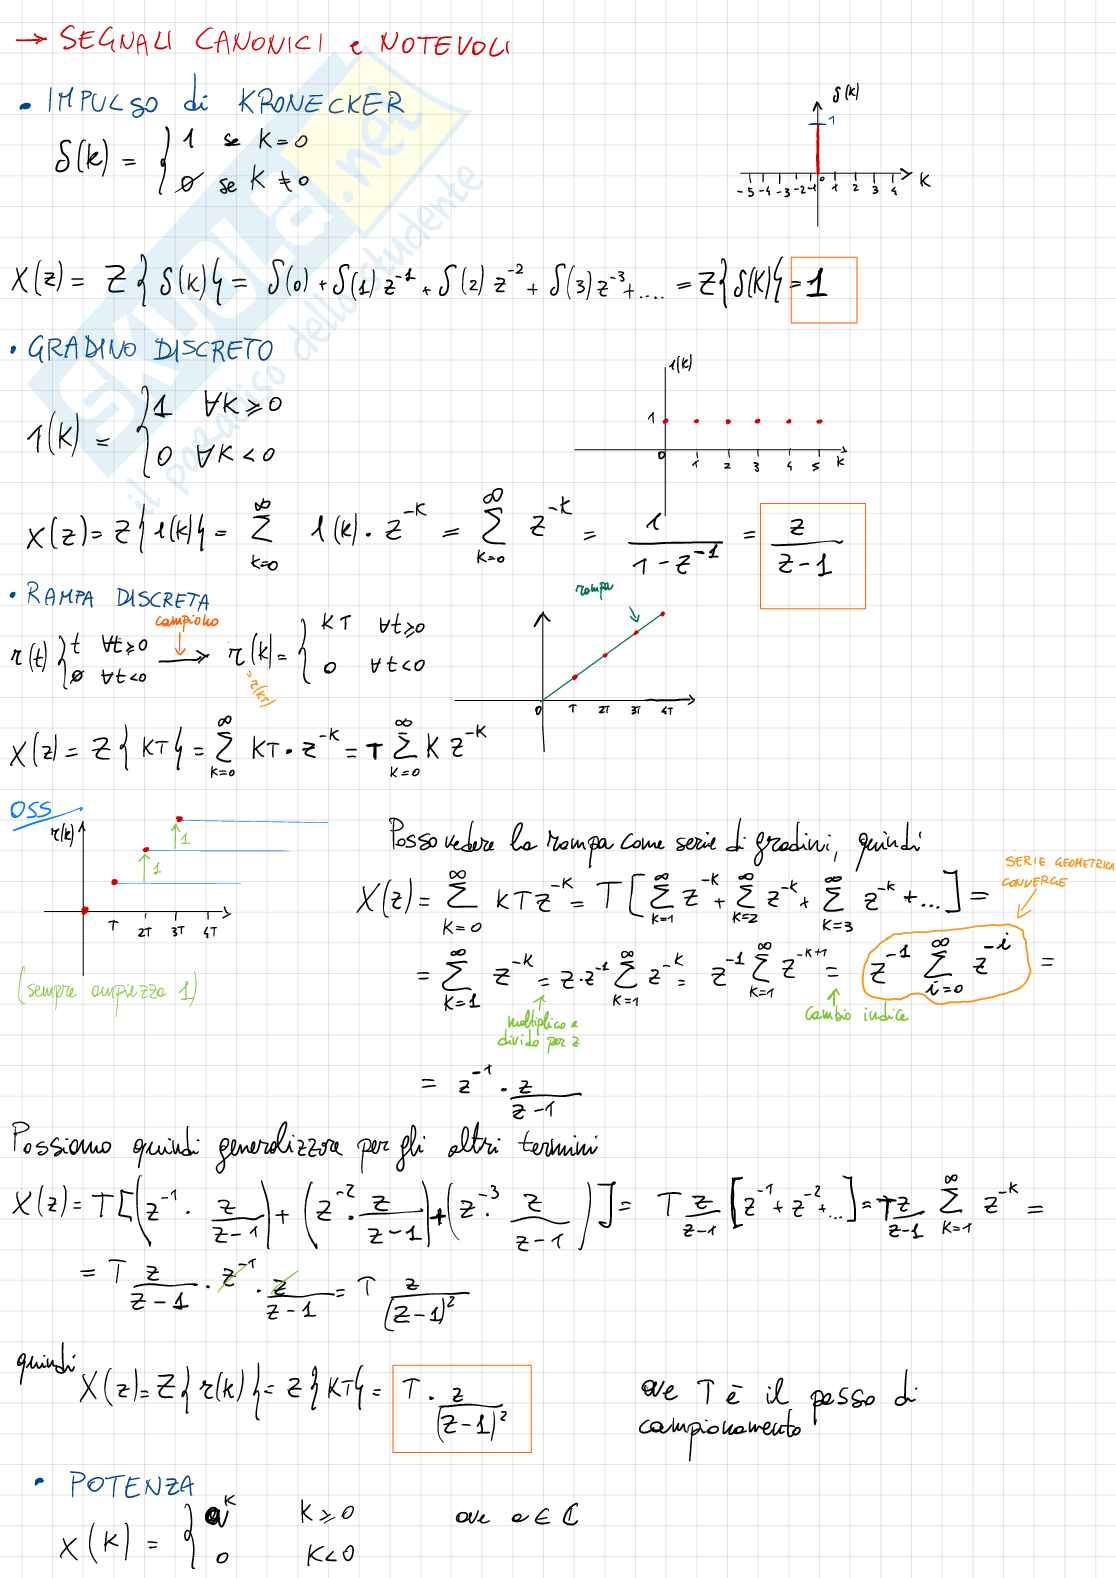 → SEGNALI CANONICI e NOTEVOLI
• IMPULSO di KRONECKER
δ(k) = { 1 se K=0
0 se K≠0
δ(k)
1
-5 -4 -3 -2 -1 0 1 2 3 4 K
X(z) = Z{δ(k)} = δ(0) + δ(1)z⁻¹ + δ(2)z⁻² + δ(3)z⁻³+.... = Z{δ(K)} = 1
• GRADINO DISCRETO
1(K) = { 1 ∀K≥0
0 ∀K<0
1(K)
1
0 1 2 3 4 5 K
X(z) = Z{1(K)} = ∑_{K=0}^{∞} 1(K)·z^{-K} = ∑_{K=0}^{∞} z^{-K} = 1/(1-z⁻¹) = z/(z-1)
• RAMPA DISCRETA
campiono
r(t) { t ∀t≥0
0 ∀t<0
→ r(k) = { KT ∀t≥0
0 ∀t<0
=r(KT)
rampa
0 T 2T 3T 4T
X(z) = Z{KT} = ∑_{K=0}^{∞} KT·z^{-K} = T ∑_{K=0}^{∞} K z^{-K}
OSS
r(k)
1
1
T 2T 3T 4T
(sempre ampiezza 1)
Posso vedere la rampa come serie di gradini, quindi
X(z) = ∑_{K=0}^{∞} KTz^{-K} = T[∑_{K=1}^{∞} z^{-K} + ∑_{K=2}^{∞} z^{-K} + ∑_{K=3}^{∞} z^{-K} + ...] =
SERIE GEOMETRICA
CONVERGE
= ∑_{K=1}^{∞} z^{-K} = z·z⁻¹ ∑_{K=1}^{∞} z^{-K} = z⁻¹ ∑_{K=1}^{∞} z^{-K+1} = z⁻¹ ∑_{i=0}^{∞} z^{-i} =
moltiplico e
divido per z
cambio indice
= z⁻¹ · z/(z-1)
Possiamo quindi generalizzare per gli altri termini
X(z) = T[(z⁻¹ · z/(z-1)) + (z⁻² · z/(z-1)) + (z⁻³ · z/(z-1))] = T z/(z-1) [z⁻¹ + z⁻² + ...] = Tz/(z-1) ∑_{K=1}^{∞} z^{-K} =
= T z/(z-1) · z⁻¹ · z/(z-1) = T z/(z-1)²
quindi
X(z) = Z{r(k)} = Z{KT} = T · z/(z-1)²
ove T è il passo di
campionamento
• POTENZA
X(K) = { a^K K≥0
0 K<0
ove a∈ℂ
SKUOLA.net
il paradiso dello studente